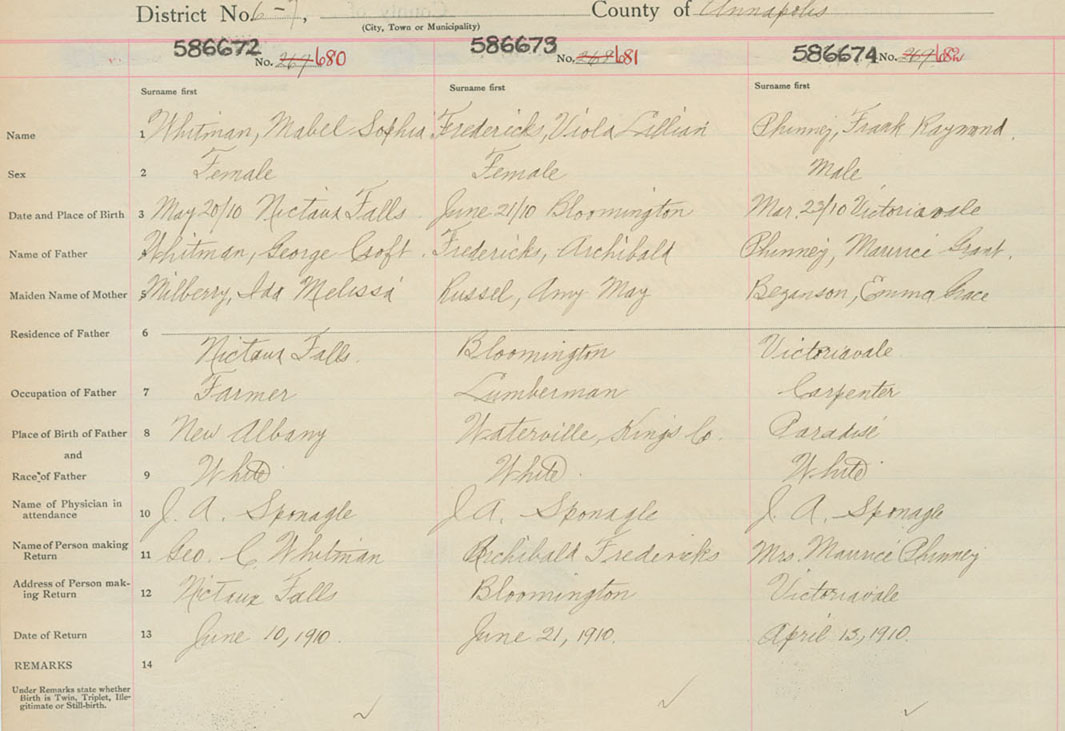 District No. 6-7, County of Annapolis
(City, Town or Municipality)
586672 No. 267 680 586673 No. 268 681 586674 No. 269 682
Surname first Surname first Surname first
Name 1 Whitman, Mabel Sophia Fredericks, Viola Lillian Phinney, Frank Raymond.
Sex 2 Female Female Male
Date and Place of Birth 3 May 20/10 Nictaux Falls June 21/10 Bloomington Mar. 23/10 Victoriavale
Name of Father Whitman, George Croft. Fredericks, Archibald Phinney, Maurice Grant.
Maiden Name of Mother 5 Milberry, Ida Melissa Russel, Amy May Bezanson, Emma Grace
Residence of Father 6
Nictaux Falls. Bloomington Victoriavale
Occupation of Father 7 Farmer Lumberman Carpenter
Place of Birth of Father 8 New Albany Waterville, Kings Co. Paradise
and
Race of Father 9 White White White
Name of Physician in
attendance 10 J. A. Sponagle J. A. Sponagle J. A. Sponagle
Name of Person making
Return 11 Geo. C Whitman Archibald Fredericks Mrs. Maurice Phinney
Address of Person mak-
ing Return 12 Nictaux Falls Bloomington Victoriavale
Date of Return 13 June 10, 1910. June 21, 1910. April 13, 1910.
REMARKS 14
Under Remarks state whether
Birth is Twin, Triplet, Ille-
gitimate or Still-birth.